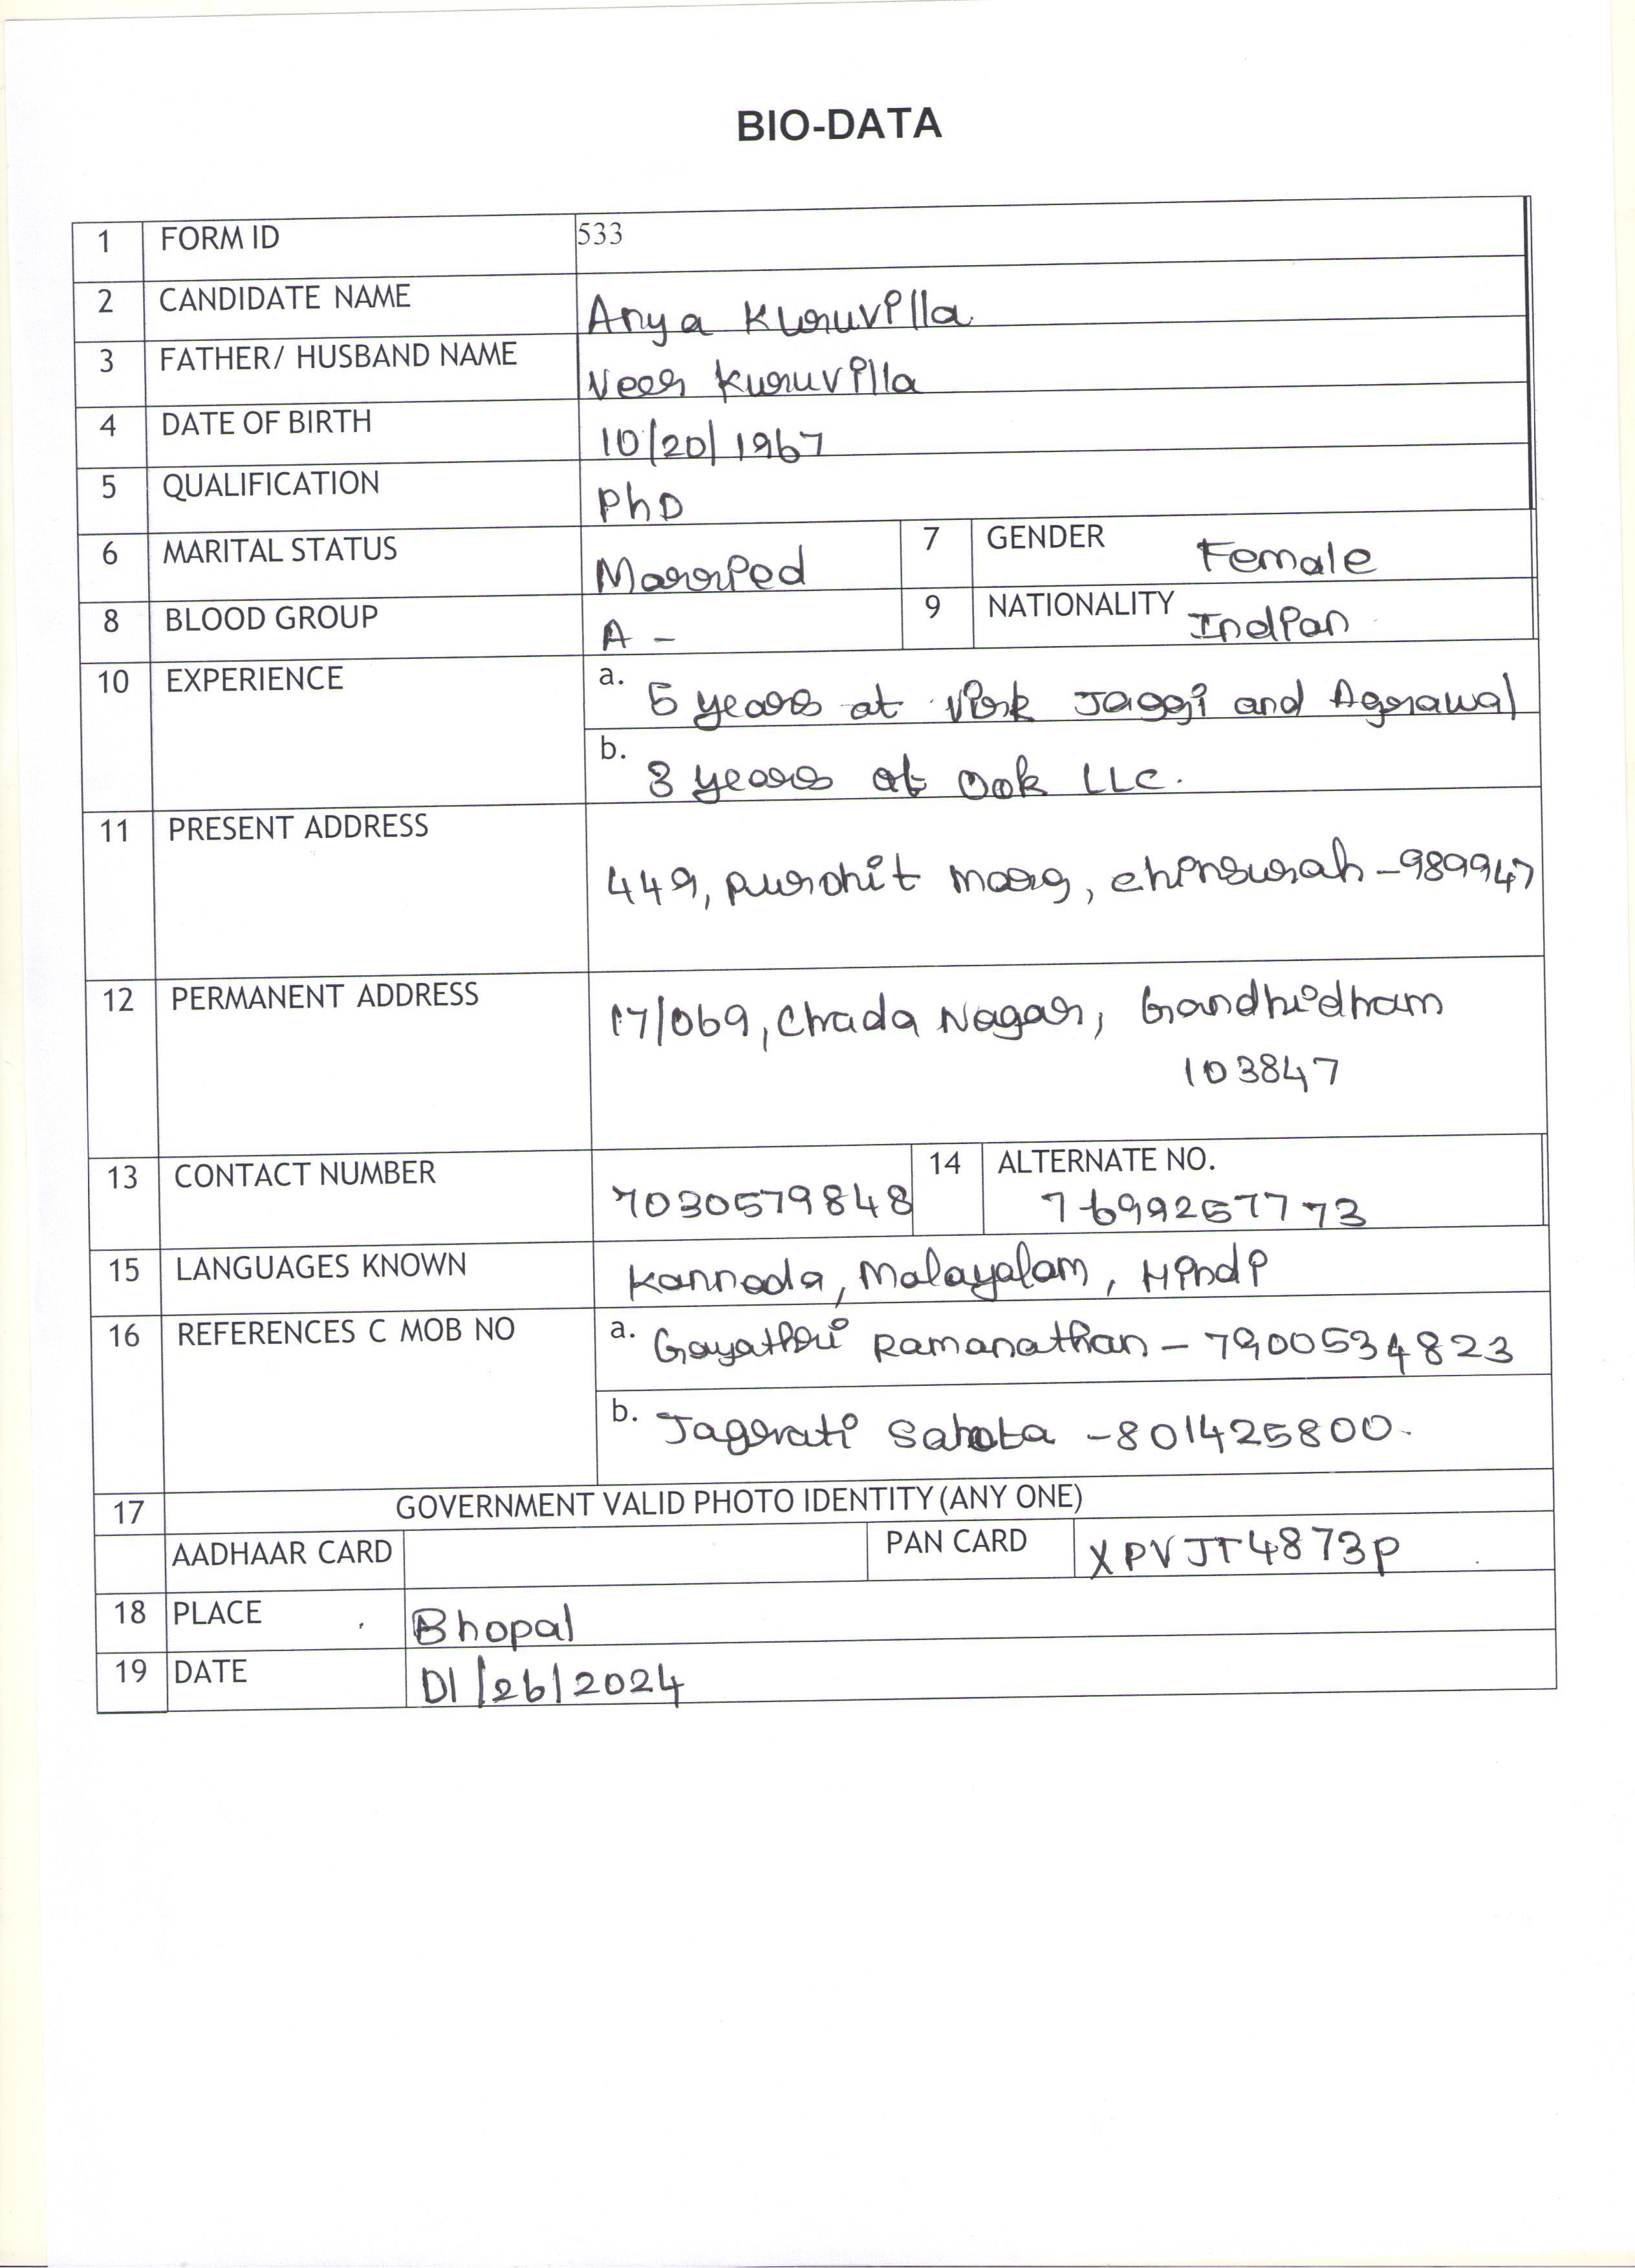 BIO-DATA
1 FORM ID 533
2 CANDIDATE NAME Anya Kuruvilla
3 FATHER/ HUSBAND NAME Veer Kuruvilla
4 DATE OF BIRTH 10/20/1967
5 QUALIFICATION PhD
6 MARITAL STATUS Married 7 GENDER Female
8 BLOOD GROUP A - 9 NATIONALITY Indian
10 EXPERIENCE a. 5 years at Virk Jaggi and Agrawal
b. 3 years at Oak LLC.
11 PRESENT ADDRESS
449, purohit marg, chinsurah - 989947
12 PERMANENT ADDRESS 17/069, Chada Nagar, Gandhidham
103847
13 CONTACT NUMBER 7030579848 14 ALTERNATE NO. 7699257773
15 LANGUAGES KNOWN Kannada, Malayalam, Hindi
16 REFERENCES C MOB NO a. Gayathri Ramanathan - 7900534823
b. Jagrati Sahota - 801425800.
17 GOVERNMENT VALID PHOTO IDENTITY (ANY ONE)
AADHAAR CARD PAN CARD XPVJT4873P
18 PLACE Bhopal
19 DATE 01/26/2024